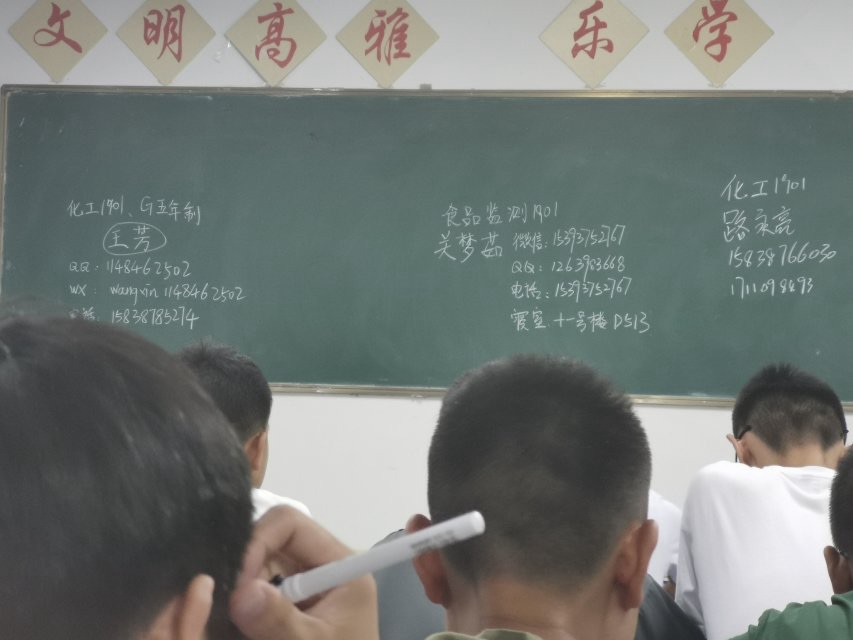 文明高雅 乐学
化工1901、G五年制
王芳
QQ: 1148462502
WX: wangxin1148462502
15838785274
食品监测1901
关梦茹
微信: 15393752767
QQ: 1263983668
电话: 15393752767
寝室: 十一号楼D513
化工1901
路永亮
15838766030
1711098493